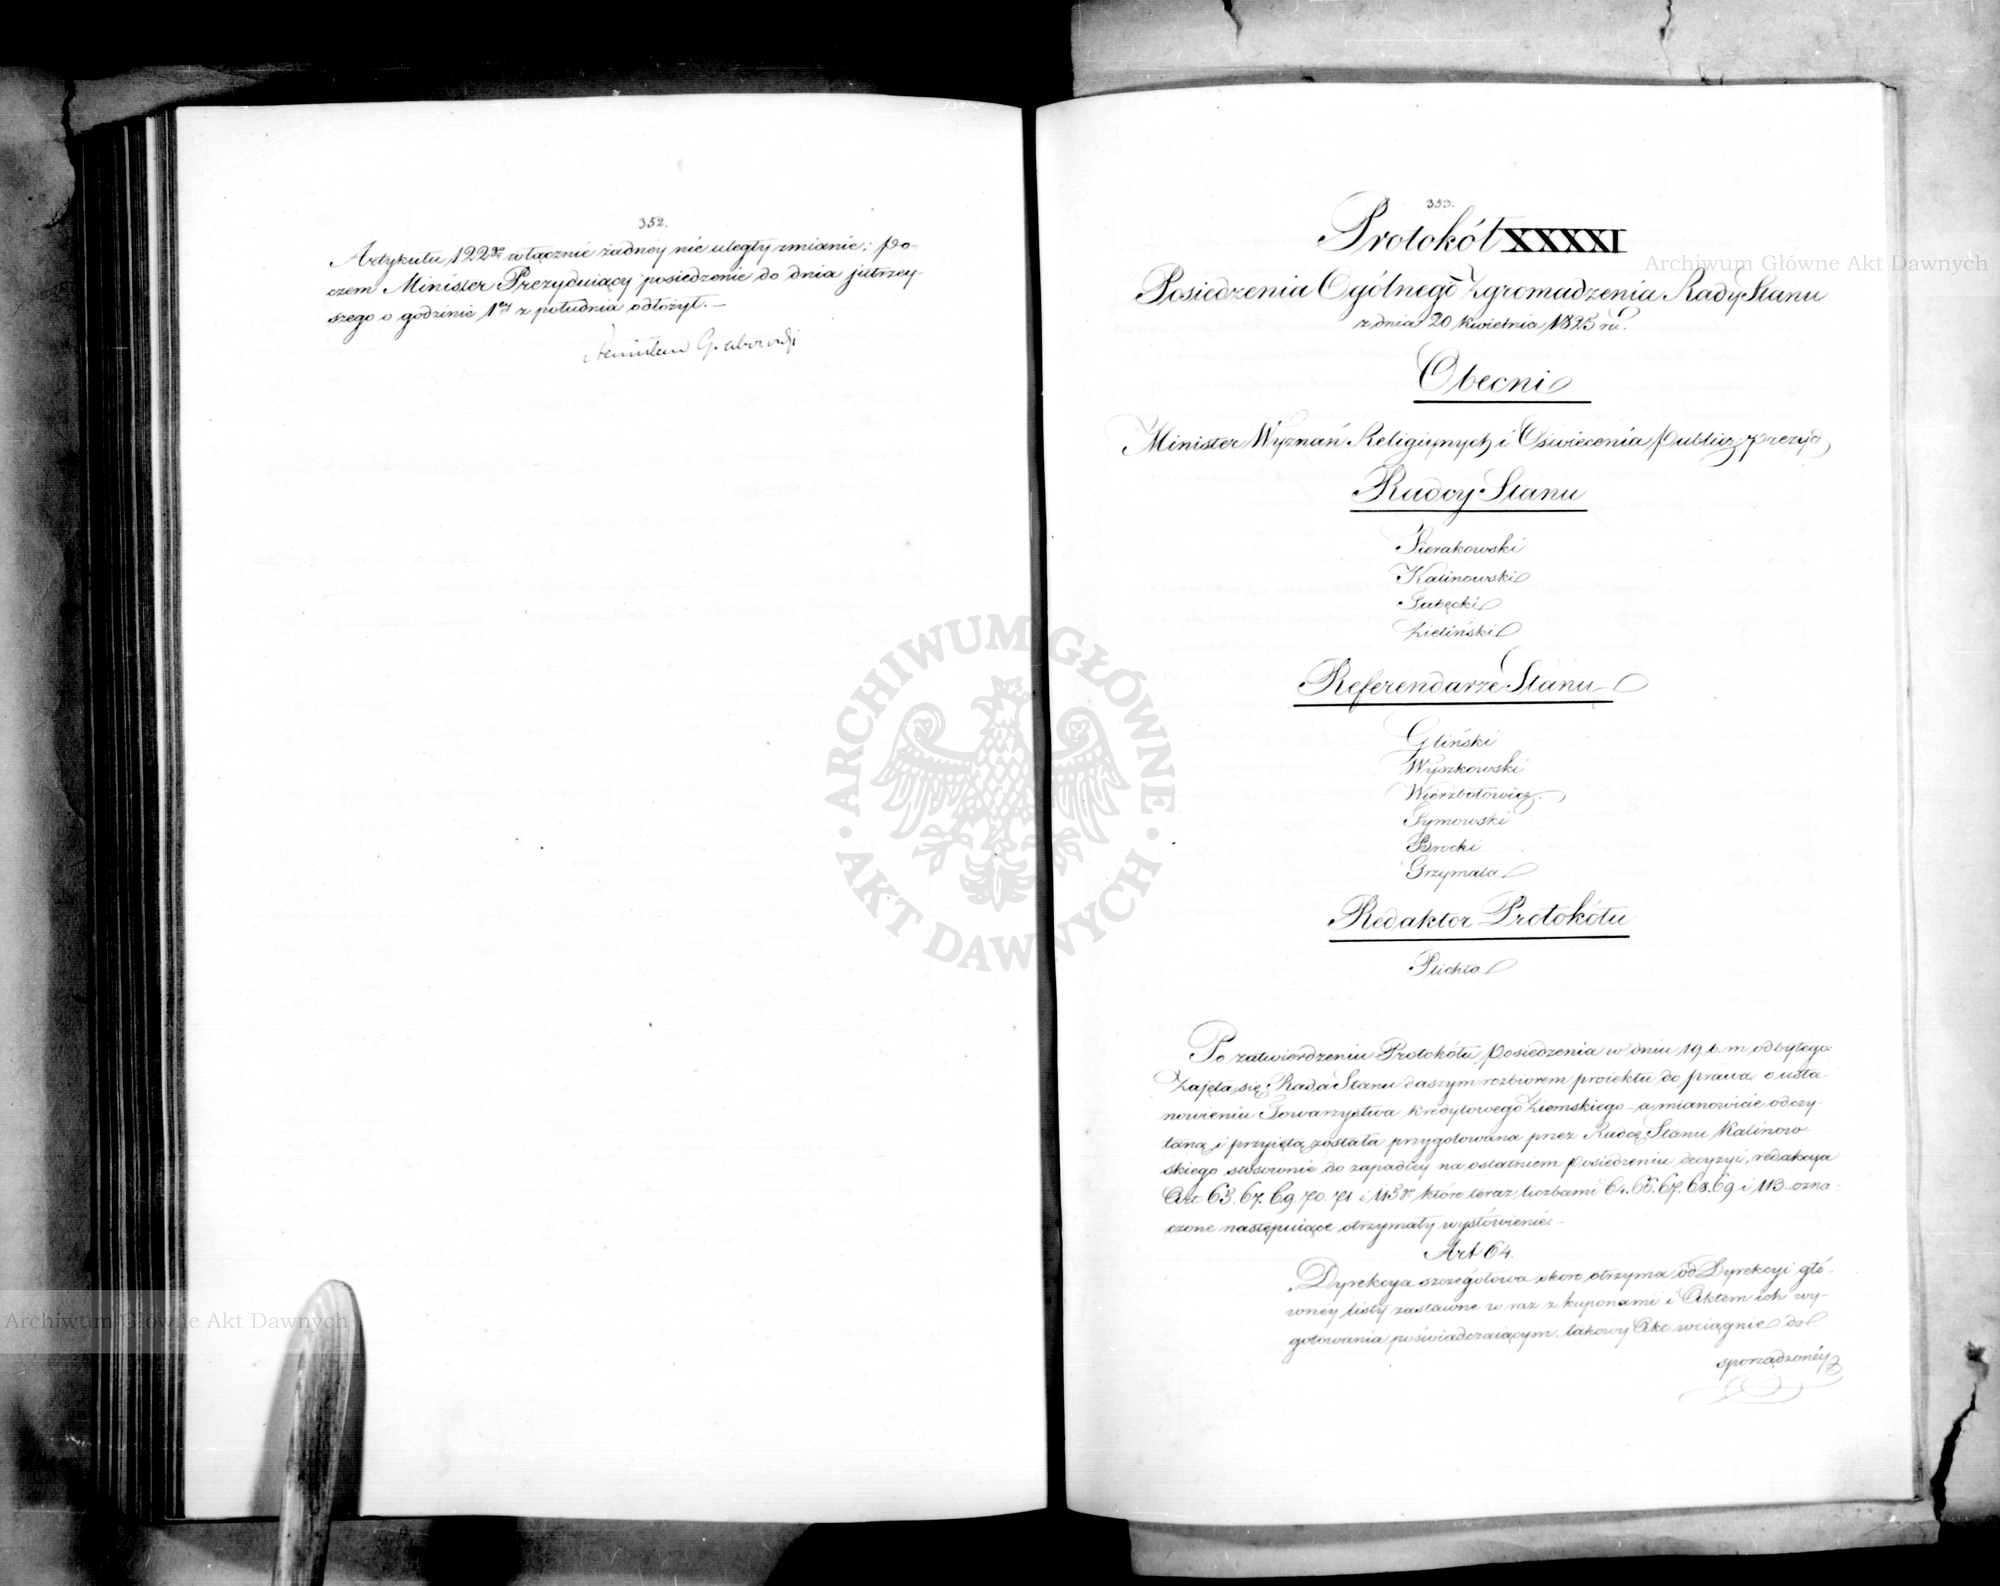 352.
Artykułu 122go włącznie żadney nie uległy zmianie; po-
czem Minister Prezyduiący posiedzenie do dnia jutrzey-
szego o godzinie 1ey z południa odłożył.—
Stanisław Grabowski
353.
Protokół XXXXI
Posiedzenia Ogólnego Zgromadzenia Rady Stanu
z dnia 20 kwietnia 1825 ru.
Obecni
Minister Wyznań Religiynych i Oświecenia Public: prezyd
Radcy Stanu
Sierakowski
Kalinowski
Zieliński
Referendarze Stanu
Gliński
Wyszkowski
Wierzbołowicz.
Symowski
Brocki
Grzymała
Redaktor Protokółu
Plichta
Po zatwierdzeniu Protokółu Posiedzenia w dniu 19 b. m. odbytego:
Zajęła się Rada Stanu dalszym rozbiorem proiektu do prawa o usta-
nowieniu Towarzystwa kredytowego Ziemskiego - a mianowicie odczy-
taną i przyiętą została przygotowana przez Radcę Stanu Kalinow-
skiego stosownie do zapadłey na ostatniem Posiedzeniu decyzyi, redakcya
Art. 63. 67. 69. 70. 71. i 113go które teraz liczbami 64. 66. 67. 68. 69 i 113. ozna-
czone następuiące otrzymały wysłowienie:-
Art 64.
„Dyrekcya szczegółowa skoro otrzyma od Dyrekcyi głó-
wney listy zastawne wraz z kuponami i Aktem ich wy-
gotowania poświadczaiącym, takowy Akt wciągnie do
sporządzoney
ARCHIWUM GŁÓWNE
AKT DAWNYCH
Archiwum Główne Akt Dawnych
Archiwum Główne Akt Dawnych